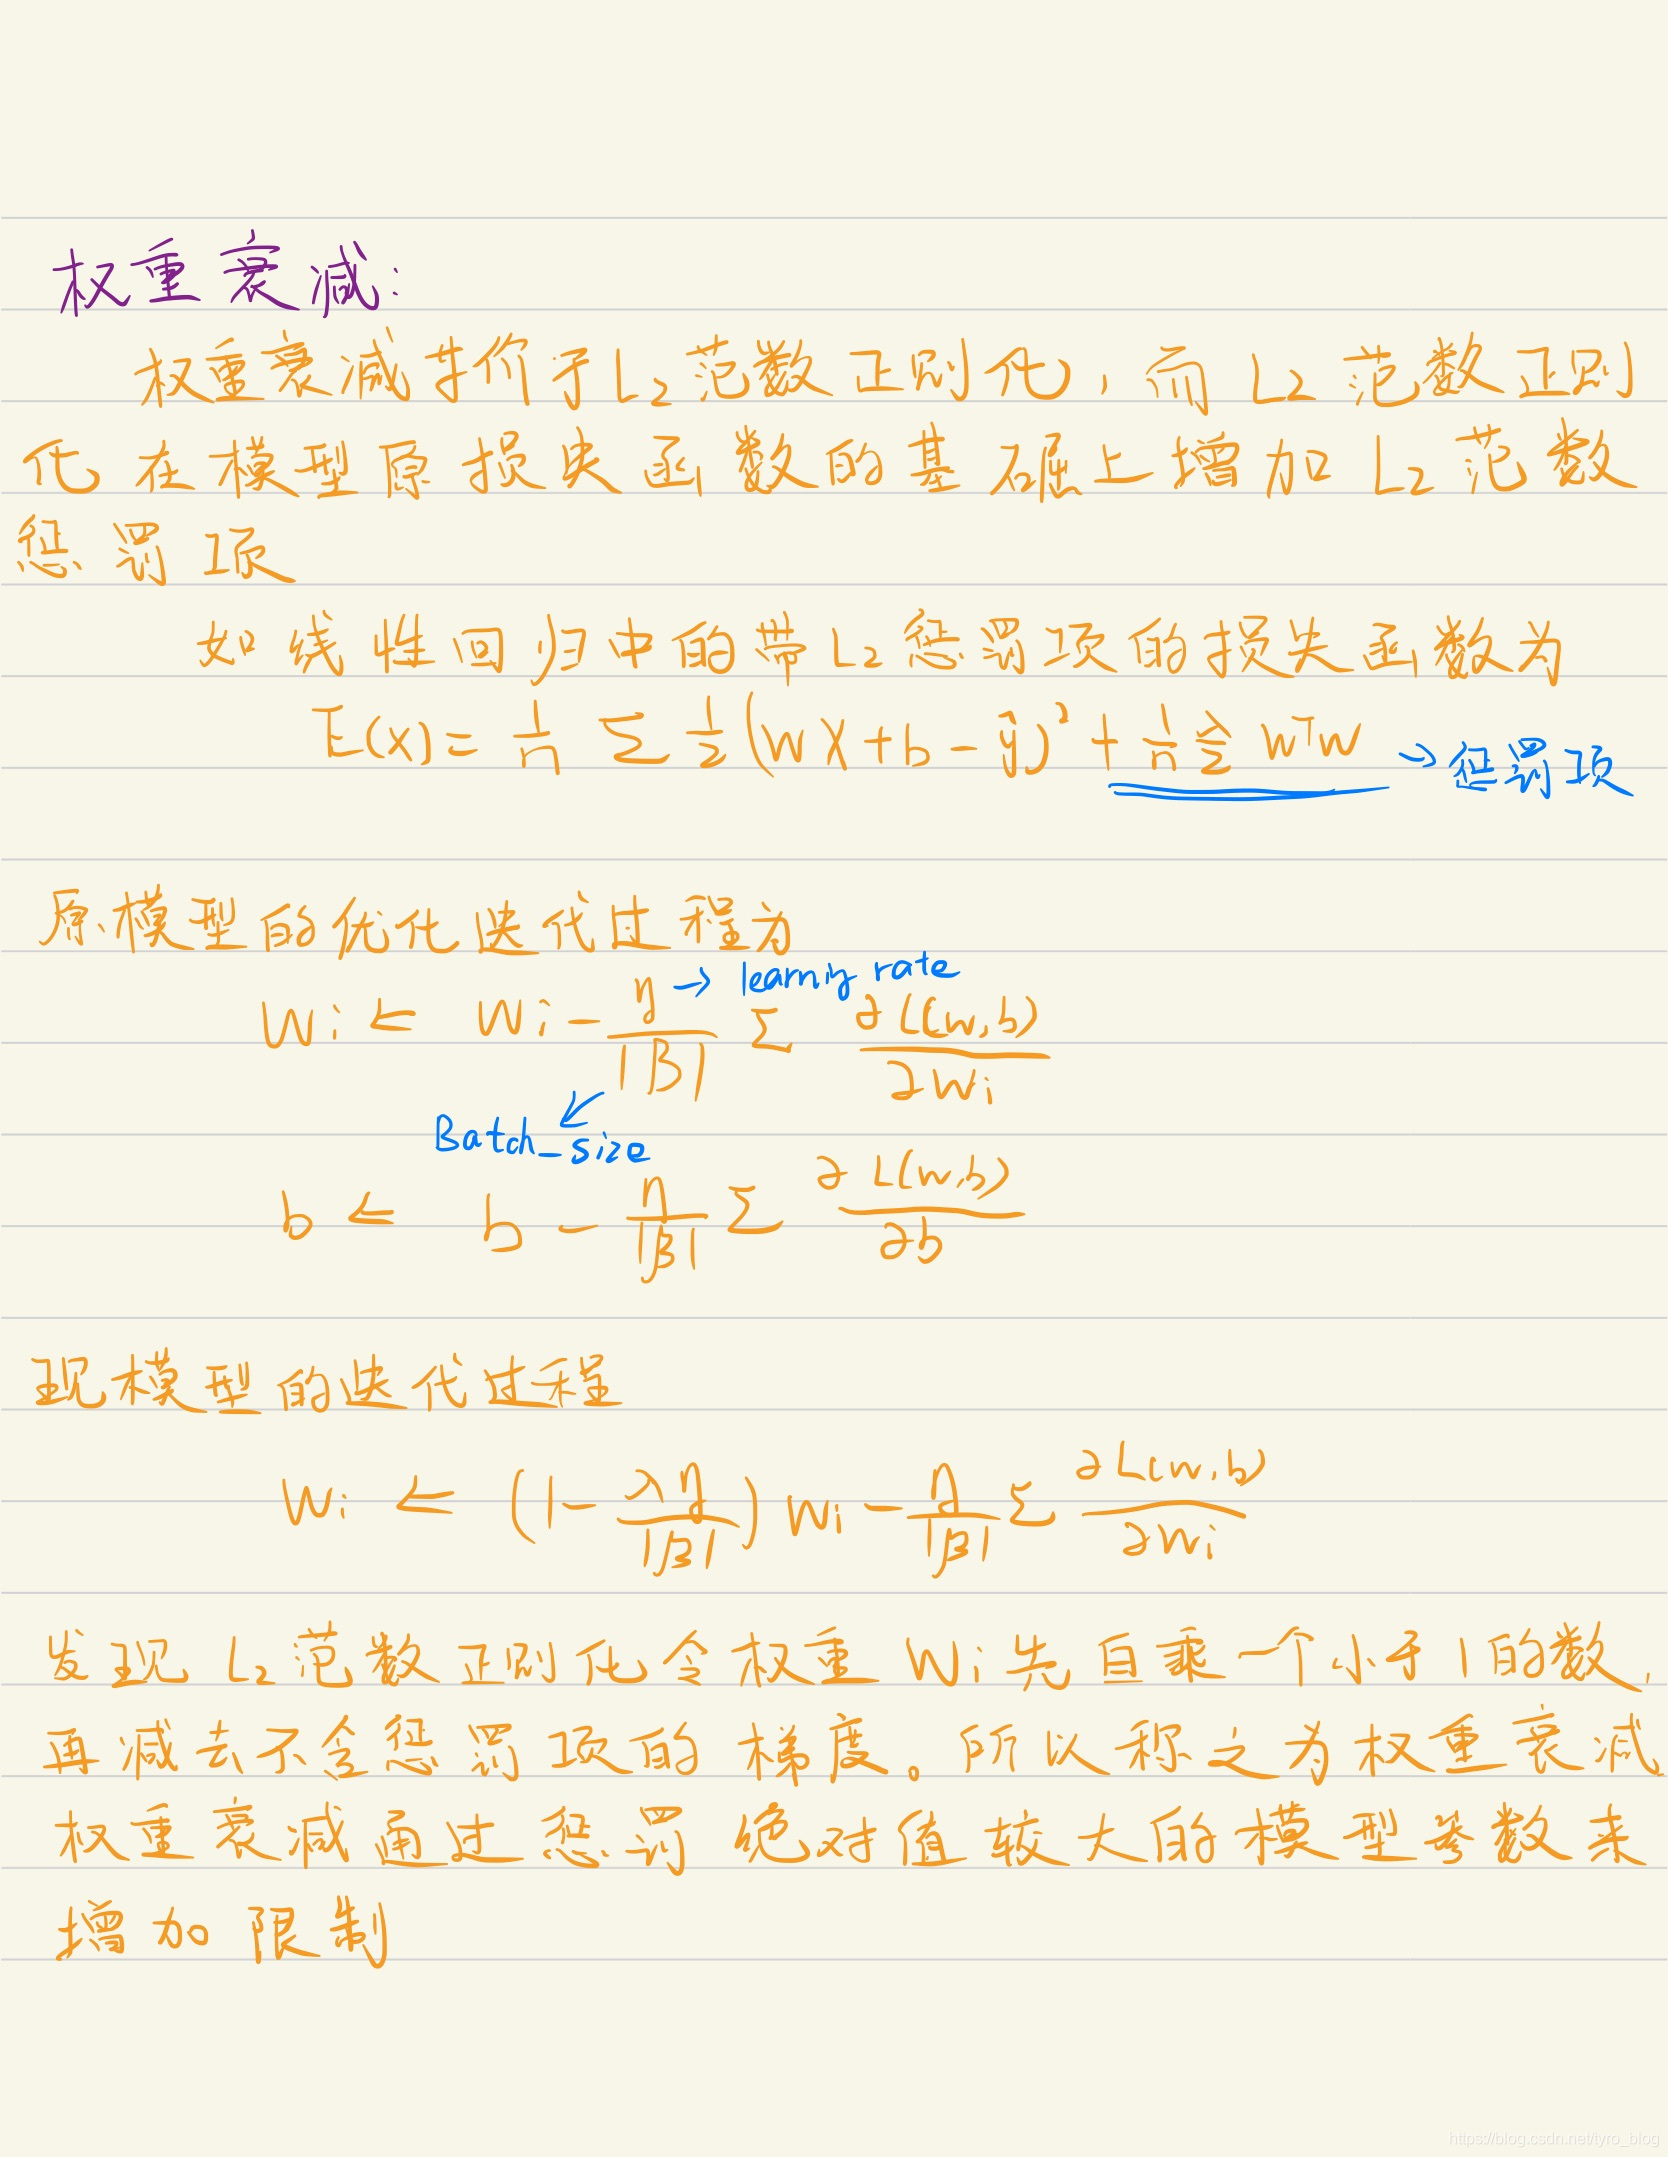 权重衰减:
权重衰减等价于L₂范数正则化,而L2范数正则
化在模型原损失函数的基础上增加L₂范数
惩罚项
如线性回归中的带L₂惩罚项的损失函数为
E(x) = 1/n Σ 1/2 (wx+b-ŷ)² + 1/n λ/2 wᵀw → 惩罚项
原模型的优化迭代过程为
wi ← wi - η/|B| Σ ∂L(w,b)/∂wi
→ learning rate
Batch_size
b ← b - η/|β| Σ ∂L(w,b)/∂b
现模型的迭代过程
wi ← (1 - λη/|β|) wi - η/|β| Σ ∂L(w,b)/∂wi
发现L₂范数正则化令权重wi先自乘一个小于1的数,
再减去不含惩罚项的梯度。所以称之为权重衰减.
权重衰减通过惩罚绝对值较大的模型参数来
增加限制
https://blog.csdn.net/tyro_blog